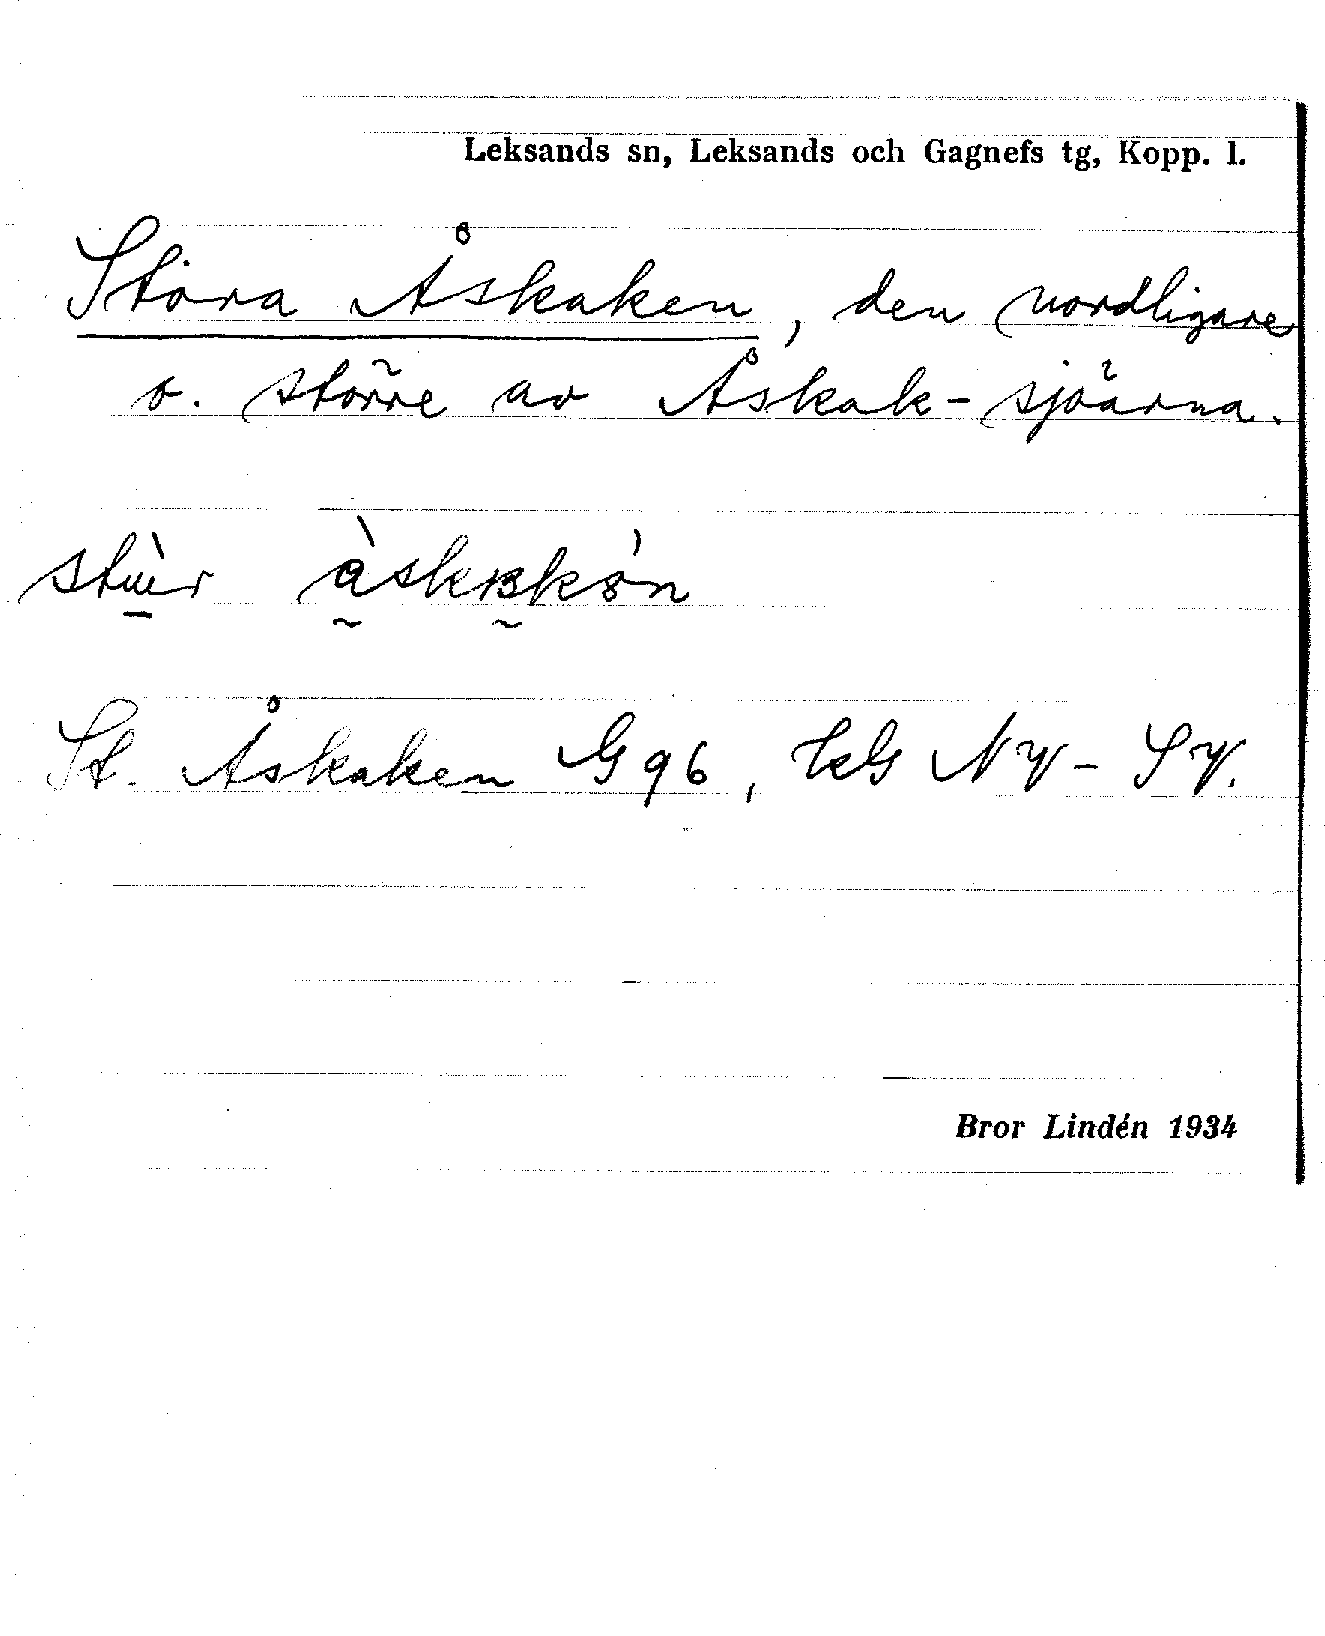 Leksands sn, Leksands och Gagnefs tg, Kopp. l.
Stora Åskaken, den nordligare
o. större av Åskak-sjöarna.
St. Åskaken G 96, kbl NV - SV.
Bror Lindén 1934